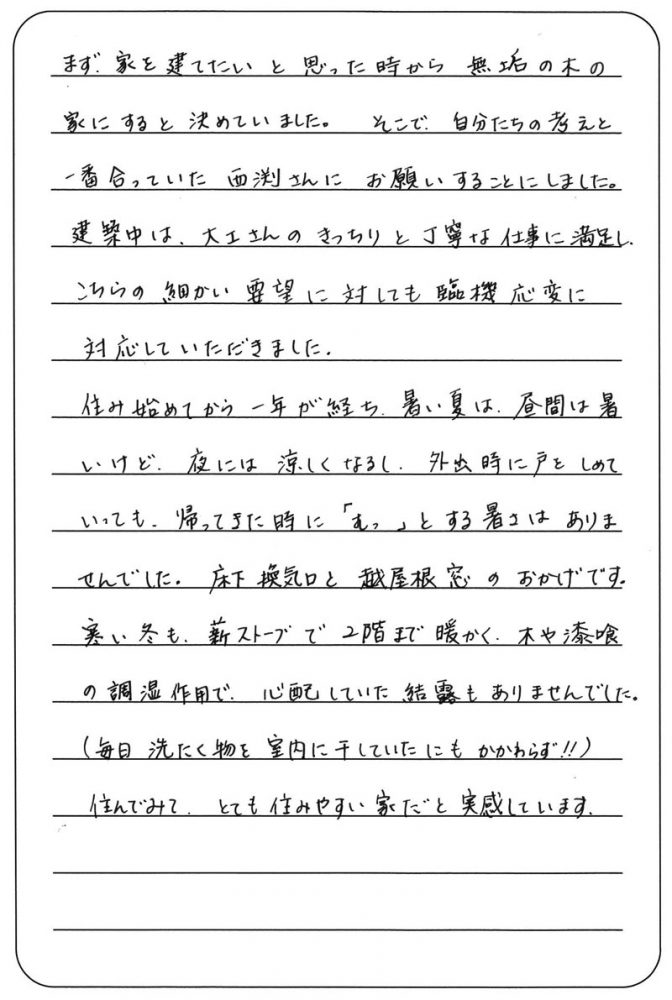 まず、家を建てたいと思った時から無垢の木の
家にすると決めていました。 そこで、自分たちの考えと
一番合っていた西渕さんにお願いすることにしました。
建築中は、大工さんのきっちりと丁寧な仕事に満足し、
こちらの細かい要望に対しても臨機応変に
対応していただきました。
住み始めてから一年が経ち、暑い夏は、昼間は暑
いけど、夜には涼しくなるし、外出時に戸をしめて
いっても、帰ってきた時に「むっ」とする暑さはありま
せんでした。床下換気口と越屋根窓のおかげです。
寒い冬も、薪ストーブで2階まで暖かく、木や漆喰
の調湿作用で、心配していた結露もありませんでした。
(毎日洗たく物を室内に干していたにもかかわらず!!)
住んでみて、とても住みやすい家だと実感しています。